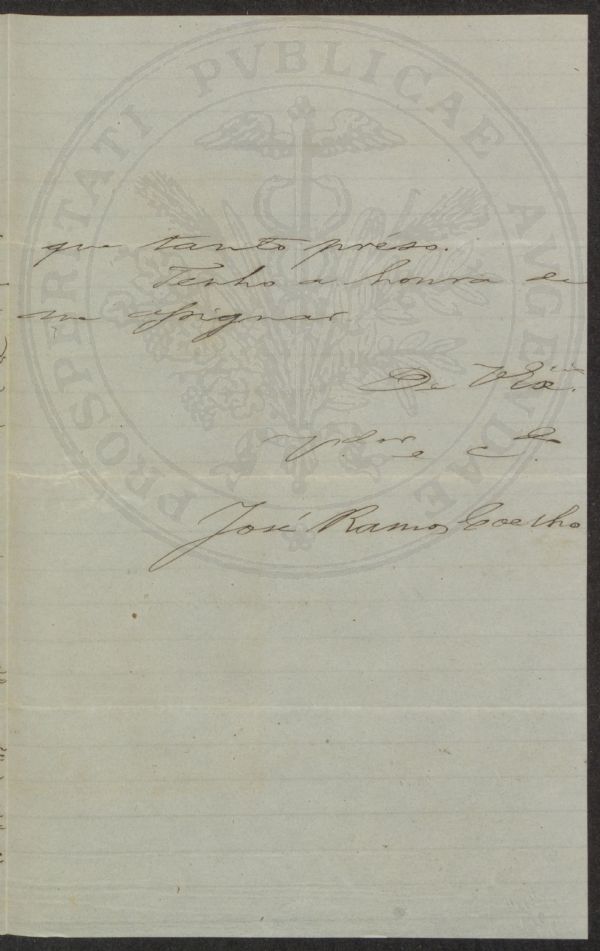 PROSPERITATI PVBLICAE AVGENDAE
que tanto préso.
Tenho a honra de
me assignar
De V. Exa.
V.or e C.
José Ramos Coelho